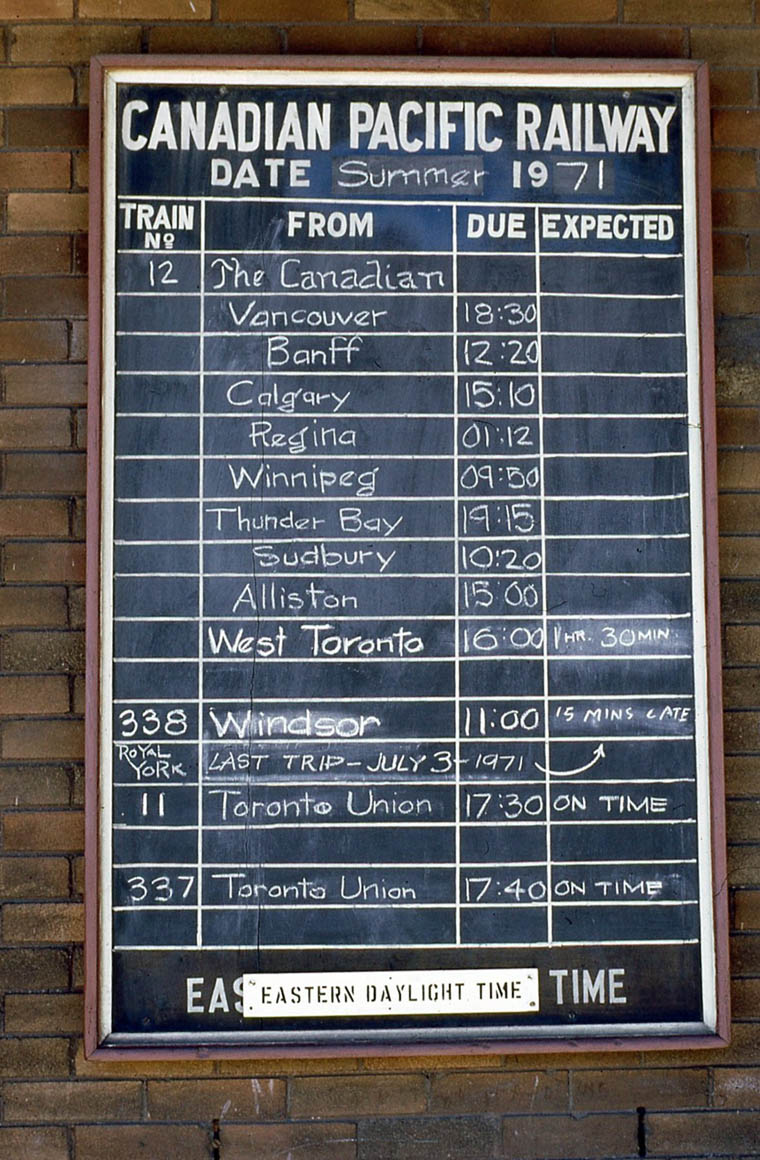 CANADIAN PACIFIC RAILWAY
DATE Summer 1971
TRAIN Nº FROM DUE EXPECTED
12 The Canadian
Vancouver 18:30
Banff 12:20
Calgary 15:10
Regina 01:12
Winnipeg 09:50
Thunder Bay 19:15
Sudbury 10:20
Alliston 15:00
West Toronto 16:00 1 HR. 30 MIN.
338 Windsor 11:00 15 MINS LATE
ROYAL YORK LAST TRIP - JULY 3 - 1971
11 Toronto Union 17:30 ON TIME
337 Toronto Union 17:40 ON TIME
EAS EASTERN DAYLIGHT TIME TIME